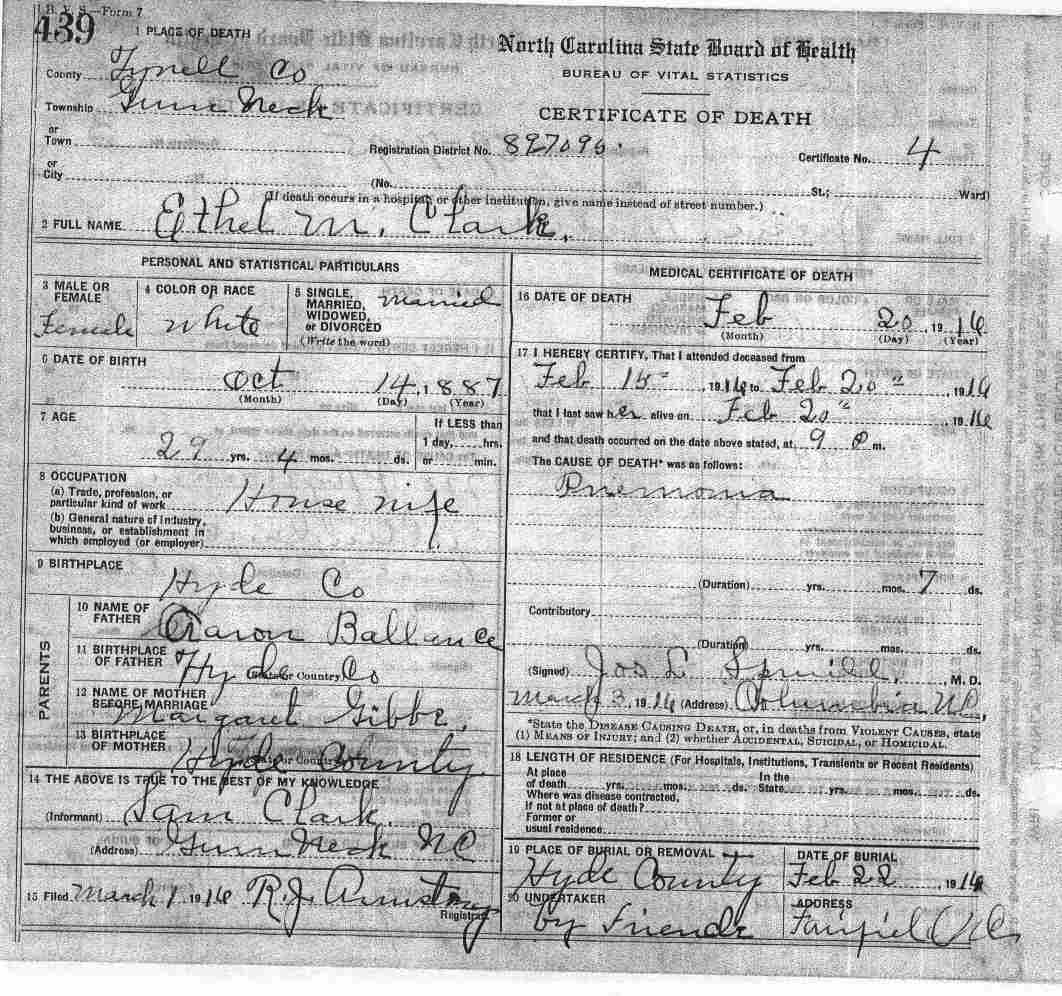 B. V. S.—Form 7
439
1 PLACE OF DEATH
North Carolina State Board of Health
BUREAU OF VITAL STATISTICS
CERTIFICATE OF DEATH
County Tyrrell Co
Township Gum Neck
or
Town
Registration District No. 897096.
Certificate No. 4
or
City
(No.
St.;
Ward)
(If death occurs in a hospital or other institution, give name instead of street number.)
2 FULL NAME Ethel M. Clark.
PERSONAL AND STATISTICAL PARTICULARS
3 MALE OR FEMALE
Female
4 COLOR OR RACE
White
5 SINGLE, MARRIED, WIDOWED, or DIVORCED
(Write the word)
Married
6 DATE OF BIRTH
Oct 14, 1887
(Month) (Day) (Year)
7 AGE
29 yrs. 4 mos. ds.
If LESS than
1 day, hrs.
or min.
8 OCCUPATION
(a) Trade, profession, or
particular kind of work House wife
(b) General nature of industry,
business, or establishment in
which employed (or employer)
9 BIRTHPLACE
Hyde Co
PARENTS
10 NAME OF FATHER Aaron Ballance
11 BIRTHPLACE OF FATHER Hyde Co
(State or Country)
12 NAME OF MOTHER BEFORE MARRIAGE
Margaret Gibbs.
13 BIRTHPLACE OF MOTHER Hyde County
(State or Country)
14 THE ABOVE IS TRUE TO THE BEST OF MY KNOWLEDGE
(Informant) Sam Clark.
(Address) Gum Neck NC
15 Filed March 1, 1916 R. J. Armstrong
Registrar
MEDICAL CERTIFICATE OF DEATH
16 DATE OF DEATH
Feb 20, 1916
(Month) (Day) (Year)
17 I HEREBY CERTIFY, That I attended deceased from
Feb 15 1916 to Feb 20 1916
that I last saw her alive on Feb 20 1916
and that death occurred on the date above stated, at 9 P m.
The CAUSE OF DEATH* was as follows:
Pnemonia
(Duration) yrs. mos. 7 ds.
Contributory
(Duration) yrs. mos. ds.
(Signed) Jos L Spruill, M. D.
March 3, 1916 (Address) Columbia NC,
*State the DISEASE CAUSING DEATH, or, in deaths from VIOLENT CAUSES, state
(1) MEANS OF INJURY; and (2) whether ACCIDENTAL, SUICIDAL, or HOMICIDAL.
18 LENGTH OF RESIDENCE (For Hospitals, Institutions, Transients or Recent Residents)
At place of death yrs. mos. ds.
In the State yrs. mos. ds.
Where was disease contracted,
if not at place of death?
Former or
usual residence
19 PLACE OF BURIAL OR REMOVAL
Hyde County
DATE OF BURIAL
Feb 22, 1916
20 UNDERTAKER
by Friends
ADDRESS